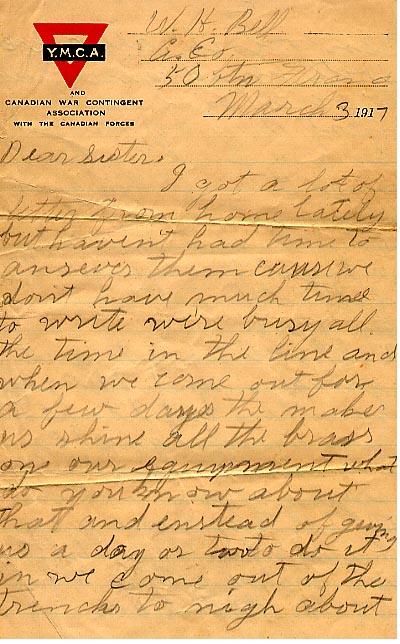 Y.M.C.A.
AND
CANADIAN WAR CONTINGENT
ASSOCIATION
WITH THE CANADIAN FORCES
W. H. Bell
50 Btn France
March 3 1917
Dear Sister,
I got a lot of
letter from home lately
but haven't had time to
answer them cause we
dont have much time
to write wire busy all
the time in the line and
when we come out for
a few days the make
us shine all the brass
on our equipment what
do you know about
that and enstead of geving
us a day or two to do it
in we come out of the
trenchs to nigh about